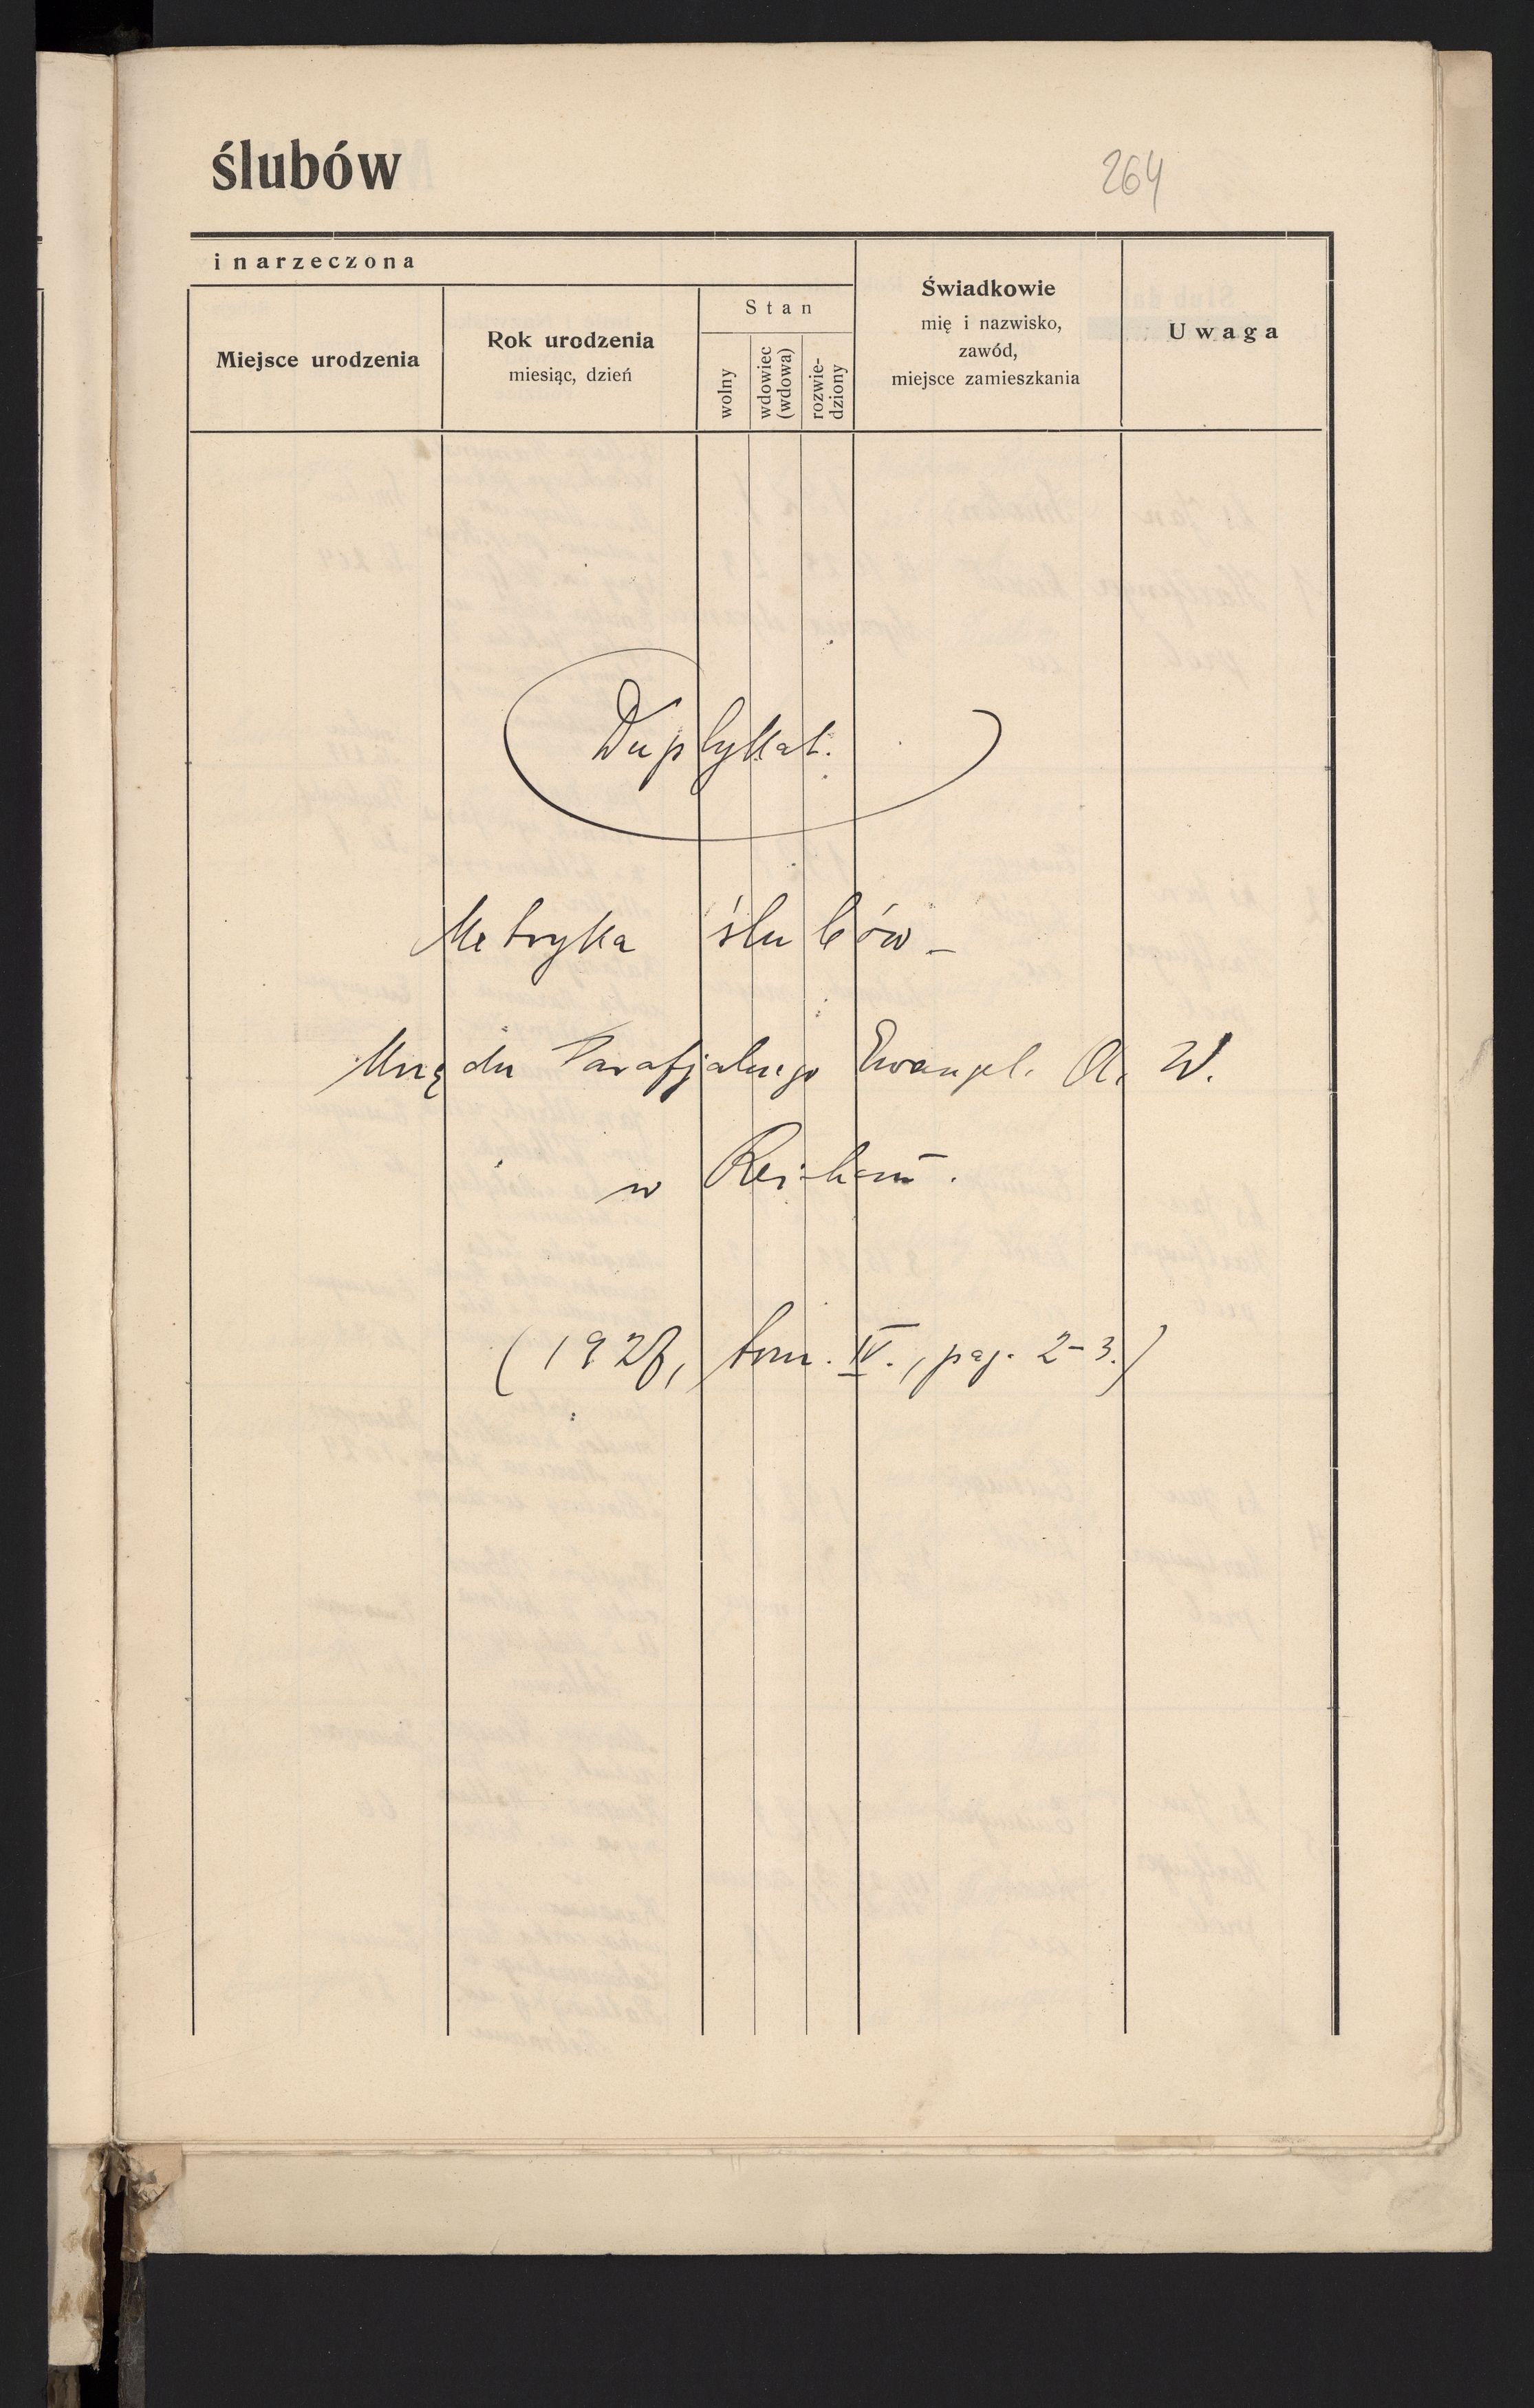 ślubów
264
i narzeczona
Miejsce urodzenia
Rok urodzenia
miesiąc, dzień
Stan
wolny
wdowiec
(wdowa)
rozwie-
dziony
Świadkowie
mię i nazwisko,
zawód,
miejsce zamieszkania
Uwaga
Duplykat.
Metryka ślubów –
Urzędu Parafjalnego Ewangel. A. W.
w
(1928, tom. IV., pag. 2-3.)